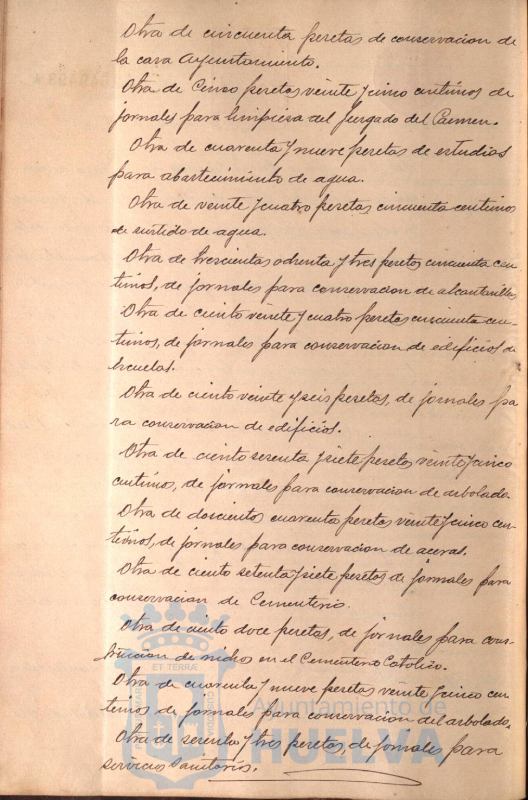 Otra de cincuenta pesetas de conservacion de
la casa Ayuntamiento.
Otra de Cinco pesetas veinte y cinco centimos de
jornales para limpiesa del Juzgado del Carmen.
Otra de cuarenta y nueve pesetas de estudios
para abastecimiento de agua.
Otra de veinte y cuatro pesetas cincuenta centimos
de surtido de agua.
Otra de trescientas ochenta y tres pesetas cincuenta cen-
timos, de jornales para conservacion de alcantarillas
Otra de ciento veinte y cuatro pesetas cincuenta cen-
timos, de jornales para conservacion de edificios de
Escuelas.
Otra de ciento veinte y seis pesetas, de jornales pa
ra conservacion de edificios.
Otra de ciento sesenta y siete pesetas veinte y cinco
centimos, de jornales para conservacion de arbolado.
Otra de doscientos cuarenta pesetas veinte y cinco cen-
timos, de jornales para conservacion de aceras.
Otra de ciento setenta y siete pesetas de jornales para
conservacion de Cementerio.
Otra de ciento doce pesetas, de jornales para cons-
truccion de nichos en el Cementerio Catolico.
Otra de cuarenta y nueve pesetas veinte y cinco cen-
timos de jornales para conservacion del arbolado.
Otra de sesenta y tres pesetas, de jornales para
servicios sanitarios.
ET TERRAE
Ayuntamiento de
HUELVA